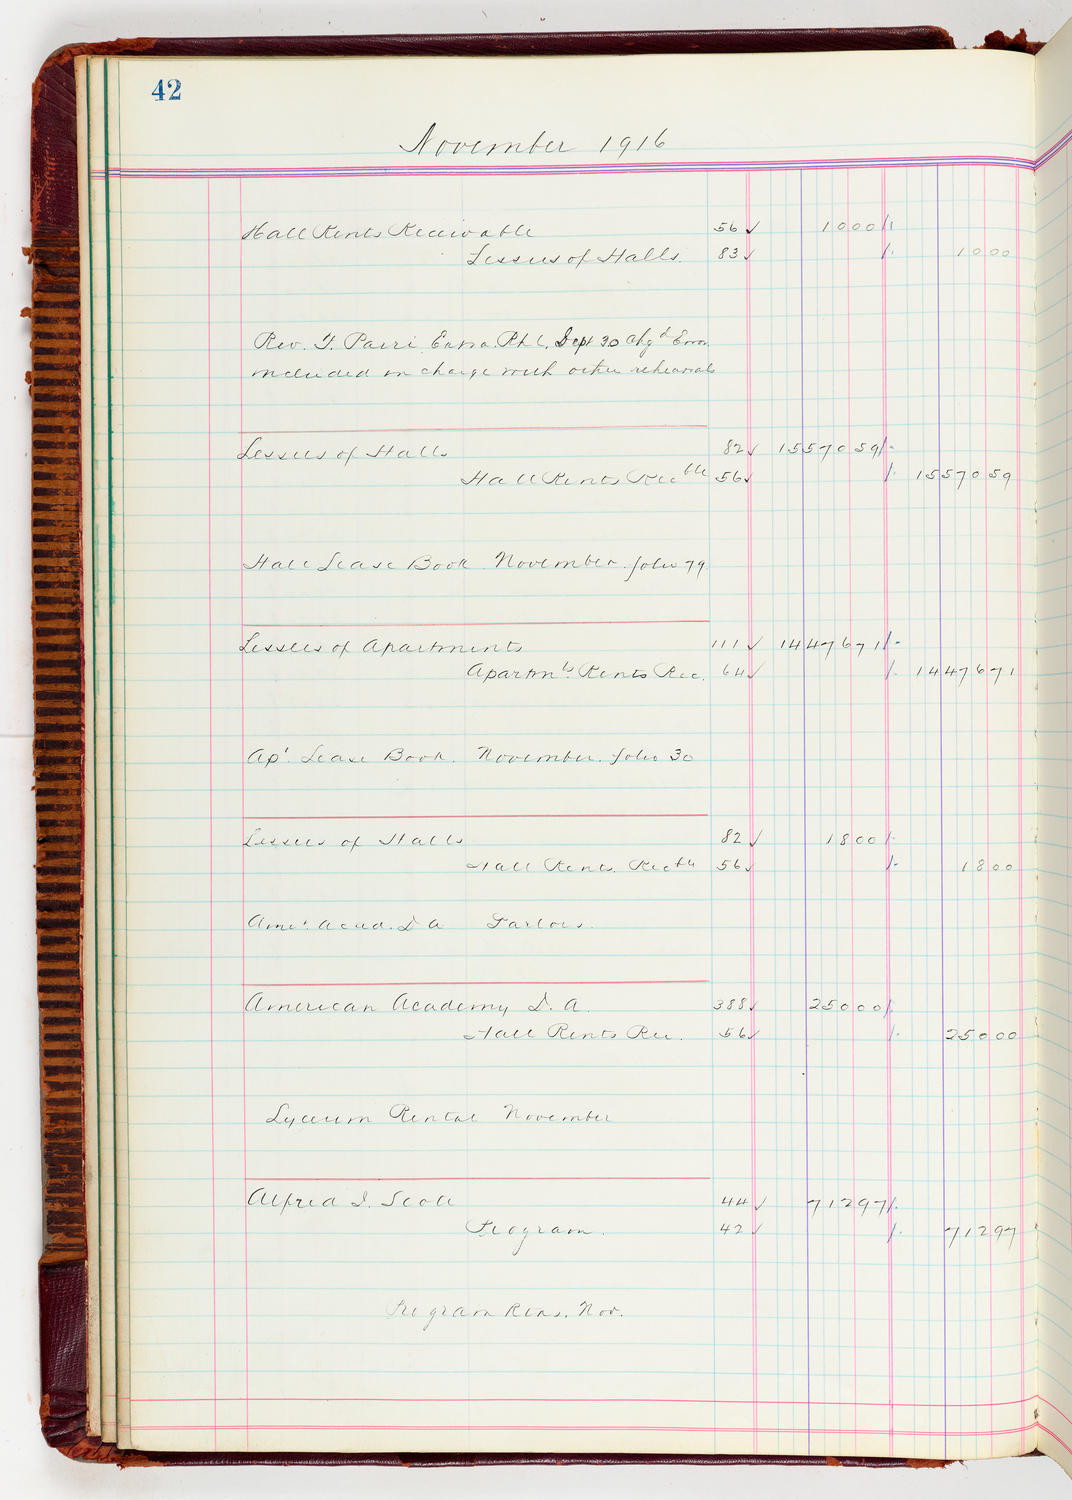 42
November 1916
Hall Rents Receivable 56 ✓ 1000
Lessees of Halls 83 ✓ 1000
Rev. Sept 30 Chgd Error
included in charge with other rehearsals
Lessees of Halls 82 ✓ 1557059
Hall Rents Recble 56 ✓ 1557059
Hall Lease Book November folio 79
Lessees of Apartments 111 ✓ 1447671
Apartmts Rents Rec. 64 ✓ 1447671
Apt Lease Book. November. folio 30
Lessees of Halls 82 ✓ 1800
Hall Rents. Recble 56 ✓ 1800
Amer. Acad. D A Parlors.
American Academy D. A. 388 ✓ 25000
Hall Rents Rec. 56 ✓ 25000
Lyceum Rental November
Alfred Scott 44 ✓ 71297
Program. 42 ✓ 71297
Program Nov.